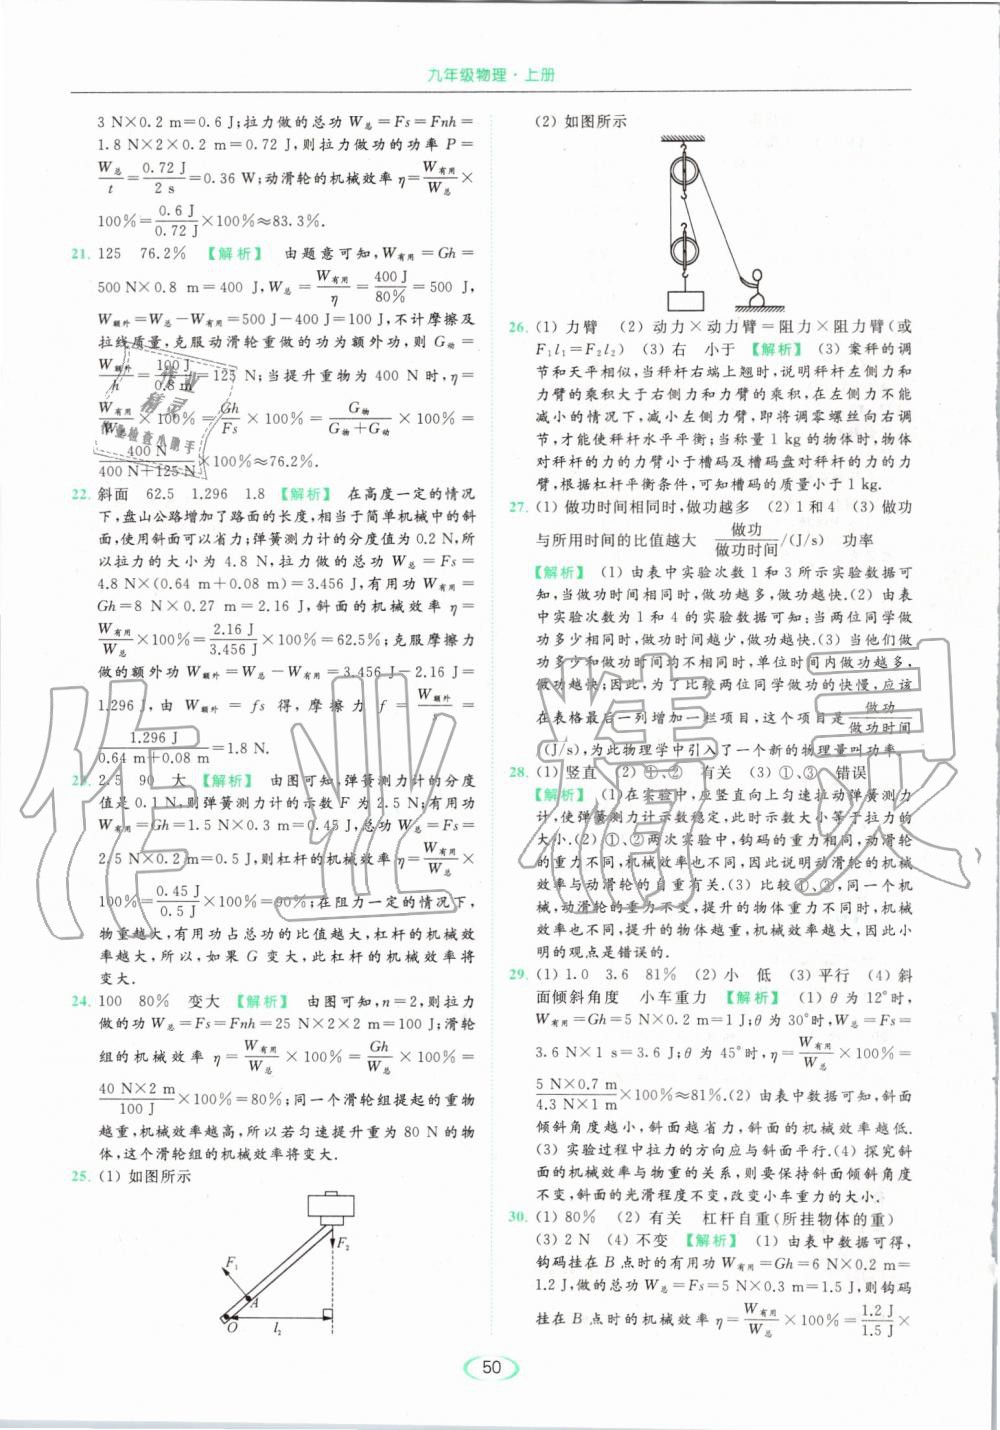 九年级物理·上册
3 N×0.2 m=0.6 J;拉力做的总功 W总=Fs=Fnh=
1.8 N×2×0.2 m=0.72 J,则拉力做功的功率 P=
W总/t=0.72 J/2 s=0.36 W;动滑轮的机械效率 η=W有用/W总×
100%=0.6 J/0.72 J×100%≈83.3%.
21. 125 76.2% 【解析】 由题意可知,W有用=Gh=
500 N×0.8 m=400 J,W总=W有用/η=400 J/80%=500 J,
W额外=W总-W有用=500 J-400 J=100 J,不计摩擦及
拉线质量,克服动滑轮重做的功为额外功,则 G动=
W额外/h=100 J/0.8 m=125 N;当提升重物为 400 N 时,η=
W有用/W总×100%=Gh/Fs×100%=G物/G物+G动×100%=
400 N/400 N+125 N×100%≈76.2%.
22. 斜面 62.5 1.296 1.8 【解析】 在高度一定的情况
下,盘山公路增加了路面的长度,相当于简单机械中的斜
面,使用斜面可以省力;弹簧测力计的分度值为 0.2 N,所
以拉力的大小为 4.8 N,拉力做的总功 W总=Fs=
4.8 N×(0.64 m+0.08 m)=3.456 J,有用功 W有用=
Gh=8 N×0.27 m=2.16 J,斜面的机械效率 η=
W有用/W总×100%=2.16 J/3.456 J×100%=62.5%;克服摩擦力
做的额外功 W额外=W总-W有用=3.456 J-2.16 J=
1.296 J,由 W额外=fs 得,摩擦力 f=W额外/s=
1.296 J/0.64 m+0.08 m=1.8 N.
23. 2.5 90 大 【解析】 由图可知,弹簧测力计的分度
值是 0.1 N,则弹簧测力计的示数 F 为 2.5 N;有用功
W有用=Gh=1.5 N×0.3 m=0.45 J,总功 W总=Fs=
2.5 N×0.2 m=0.5 J,则杠杆的机械效率 η=W有用/W总×
100%=0.45 J/0.5 J×100%=90%;在阻力一定的情况下,
物重越大,有用功占总功的比值越大,杠杆的机械效
率越大,所以,如果 G 变大,此杠杆的机械效率将
变大.
24. 100 80% 变大 【解析】 由图可知,n=2,则拉力
做的功 W总=Fs=Fnh=25 N×2×2 m=100 J;滑轮
组的机械效率 η=W有用/W总×100%=Gh/W总×100%=
40 N×2 m/100 J×100%=80%;同一个滑轮组提起的重物
越重,机械效率越高,所以若匀速提升重为 80 N 的物
体,这个滑轮组的机械效率将变大.
25. (1) 如图所示
F₁
F₂
A
O
l₂
(2) 如图所示
26. (1) 力臂 (2) 动力×动力臂=阻力×阻力臂(或
F₁l₁=F₂l₂) (3) 右 小于 【解析】 (3) 案秤的调
节和天平相似,当秤杆右端上翘时,说明秤杆左侧力和
力臂的乘积大于右侧力和力臂的乘积,在左侧力不能
减小的情况下,减小左侧力臂,即将调零螺丝向右调
节,才能使秤杆水平平衡;当称量 1 kg 的物体时,物体
对秤杆的力的力臂小于槽码及槽码盘对秤杆的力的力
臂,根据杠杆平衡条件,可知槽码的质量小于 1 kg.
27. (1) 做功时间相同时,做功越多 (2) 1 和 4 (3) 做功
与所用时间的比值越大 做功/做功时间/(J/s) 功率
【解析】 (1) 由表中实验次数 1 和 3 所示实验数据可
知,当做功时间相同时,做功越多,做功越快.(2) 由表
中实验次数为 1 和 4 的实验数据可知;当两位同学做
功多少相同时,做功时间越少,做功越快.(3) 当他们做
功多少和做功时间均不同时,单位时间内做功越多,
做功越快;因此,为了比较两位同学做功的快慢,应该
在表格最后一列增加一栏项目,这个项目是做功/做功时间
(J/s),为此物理学中引入了一个新的物理量叫功率.
28. (1) 竖直 (2) ①、② 有关 (3) ①、③ 错误
【解析】 (1) 在实验中,应竖直向上匀速拉动弹簧测力
计,使弹簧测力计示数稳定,此时示数大小等于拉力的
大小.(2) ①、②两次实验中,钩码的重力相同,动滑轮
的重力不同,机械效率也不同,因此说明动滑轮的机械
效率与动滑轮的自重有关.(3) 比较①、③,同一个机
械,动滑轮的重力不变,提升的物体重力不同时,机械
效率也不同,提升的物体越重,机械效率越大,因此小
明的观点是错误的.
29. (1) 1.0 3.6 81% (2) 小 低 (3) 平行 (4) 斜
面倾斜角度 小车重力 【解析】 (1) θ 为 12°时,
W有用=Gh=5 N×0.2 m=1 J;θ 为 30°时,W总=Fs=
3.6 N×1 s=3.6 J;θ 为 45°时,η=W有用/W总×100%=
5 N×0.7 m/4.3 N×1 m×100%≈81%.(2) 由表中数据可知,斜面
倾斜角度越小,斜面越省力,斜面的机械效率越低.
(3) 实验过程中拉力的方向应与斜面平行.(4) 探究斜
面的机械效率与物重的关系,则要保持斜面倾斜角度
不变,斜面的光滑程度不变,改变小车重力的大小.
30. (1) 80% (2) 有关 杠杆自重(所挂物体的重)
(3) 2 N (4) 不变 【解析】 (1) 由表中数据可得,
钩码挂在 B 点时的有用功 W有用=Gh=6 N×0.2 m=
1.2 J,做的总功 W总=Fs=5 N×0.3 m=1.5 J,则钩码
挂在 B 点时的机械效率 η=W有用/W总×100%=1.2 J/1.5 J×
50
作业精灵